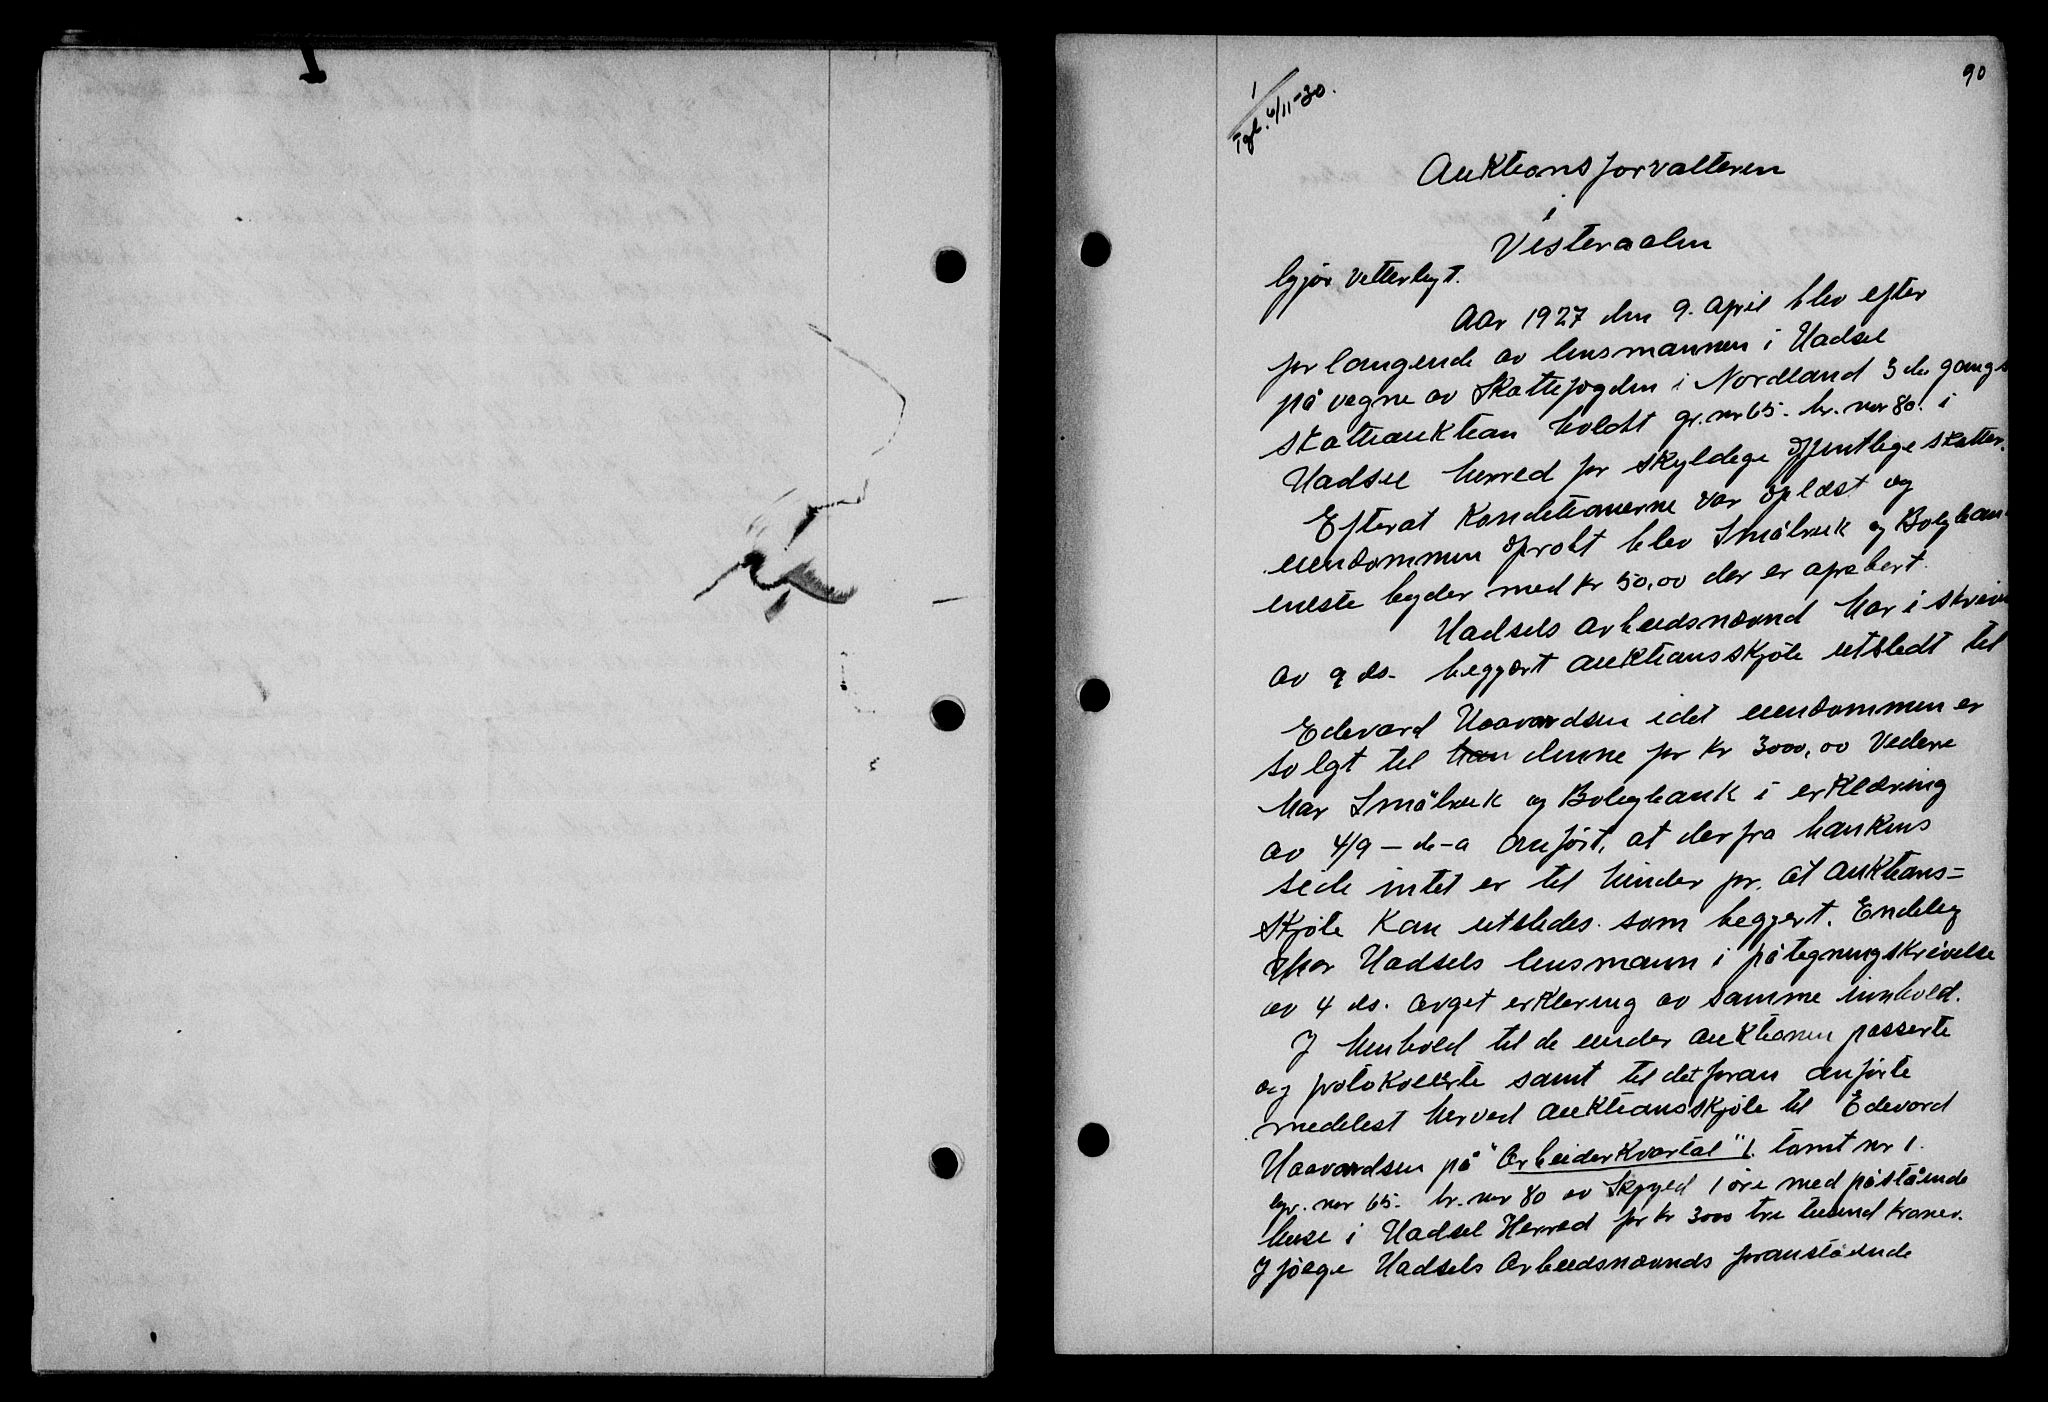 90
1
Tgb. 6/11-30.
Auktionsforvalteren
i
Vesteraalen
gjør vitterligt.
Aar 1927 den 9. april blev efter
forlangende av lensmannen i Hadsel
på vegne av Skattefogden i Nordland 3die gangs
skatteauktion holdt gr. nr 65. br. nr 80. i
Hadsel herred for skyldige offentlige skatter.
Efterat konditionerne var oplæst og
eiendommen oprobt blev Småbruk og Boligbank
eneste byder med kr 50,00 der er approbert.
Hadsels arbeidsnævnd har i skrive
av 9 ds. begjært auktionsskjøte utstedt til
Edevard Haavardsen idet eiendommen er
solgt til han denne for kr 3000,00 Videre
har Småbruk og Boligbank i erklæring
av 4/9 – d-a anført, at der fra bankens
side intet er til hinder for at auktions=
skjøte kan utstedes som begjert. Endelig
har Hadsels lensmann i påtegningskrivelse
av 4 ds. avget erklering av samme innhold.
I henhold til de under auktionen passerte
og protokollerte samt til det foran anførte
medelest herved auktionsskjøte til Edevard
Haavardsen på "Arbeiderkvartal" 1. tomt nr 1.
gr. nr 65. br. nr 80 av skyld 1 øre med påstående
huse i Hadsel Herred for kr 3000 tre tusind kroner.
Ifølge Hadsels Arbeidsnævnds foranstående